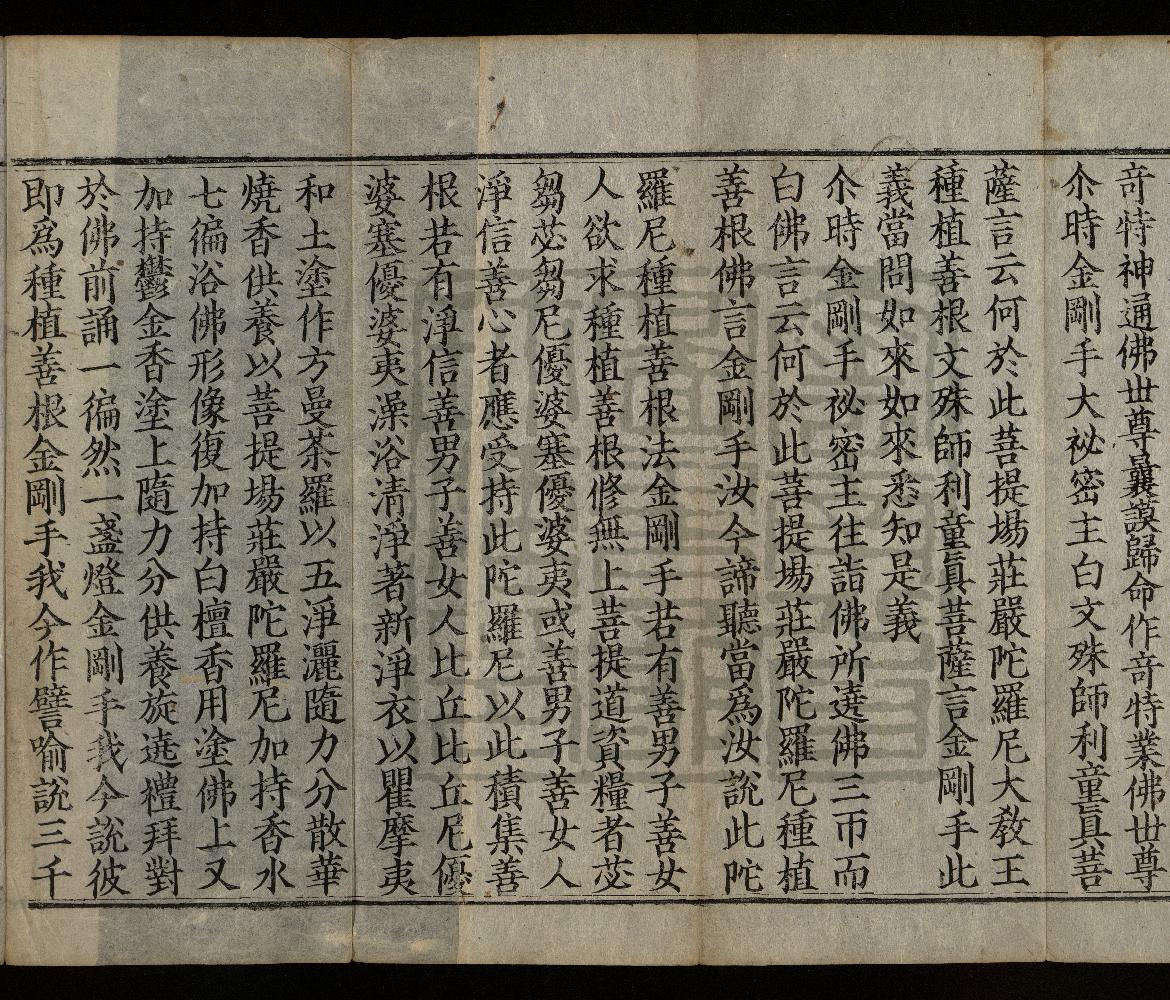 竒特神通佛世尊曩謨歸命作竒特業佛世尊
尒時金剛手大祕密主白文殊師利童真菩
薩言云何於此菩提場莊嚴陀羅尼大敎王
種植善根文殊師利童真菩薩言金剛手此
義當問如來如來悉知是義
尒時金剛手祕密主往詣佛所遶佛三帀而
白佛言云何於此菩提場莊嚴陀羅尼種植
善根佛言金剛手汝今諦聽當爲汝說此陀
羅尼種植善根法金剛手若有善男子善女
人欲求種植善根修無上菩提道資糧者苾
芻苾芻尼優婆塞優婆夷或善男子善女人
淨信善心者應受持此陀羅尼以此積集善
根若有淨信善男子善女人比丘比丘尼優
婆塞優婆夷澡浴清淨著新淨衣以瞿摩夷
和土塗作方曼茶羅以五淨灑隨力分散華
燒香供養以菩提場莊嚴陀羅尼加持香水
七徧浴佛形像復加持白檀香用塗佛上又
加持鬱金香塗上隨力分供養旋遶禮拜對
於佛前誦一徧然一盞燈金剛手我今說彼
即爲種植善根金剛手我今作譬喻說三千